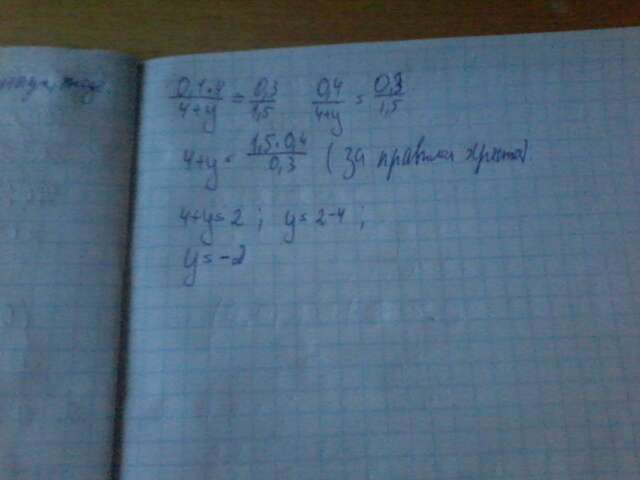 0,1·4/4+y = 0,3/1,5   0,4/4+y = 0,3/1,5
4+y = 1,5·0,4/0,3 (за правилом хреста).
4+y=2 ; y=2-4 ;
y=-2